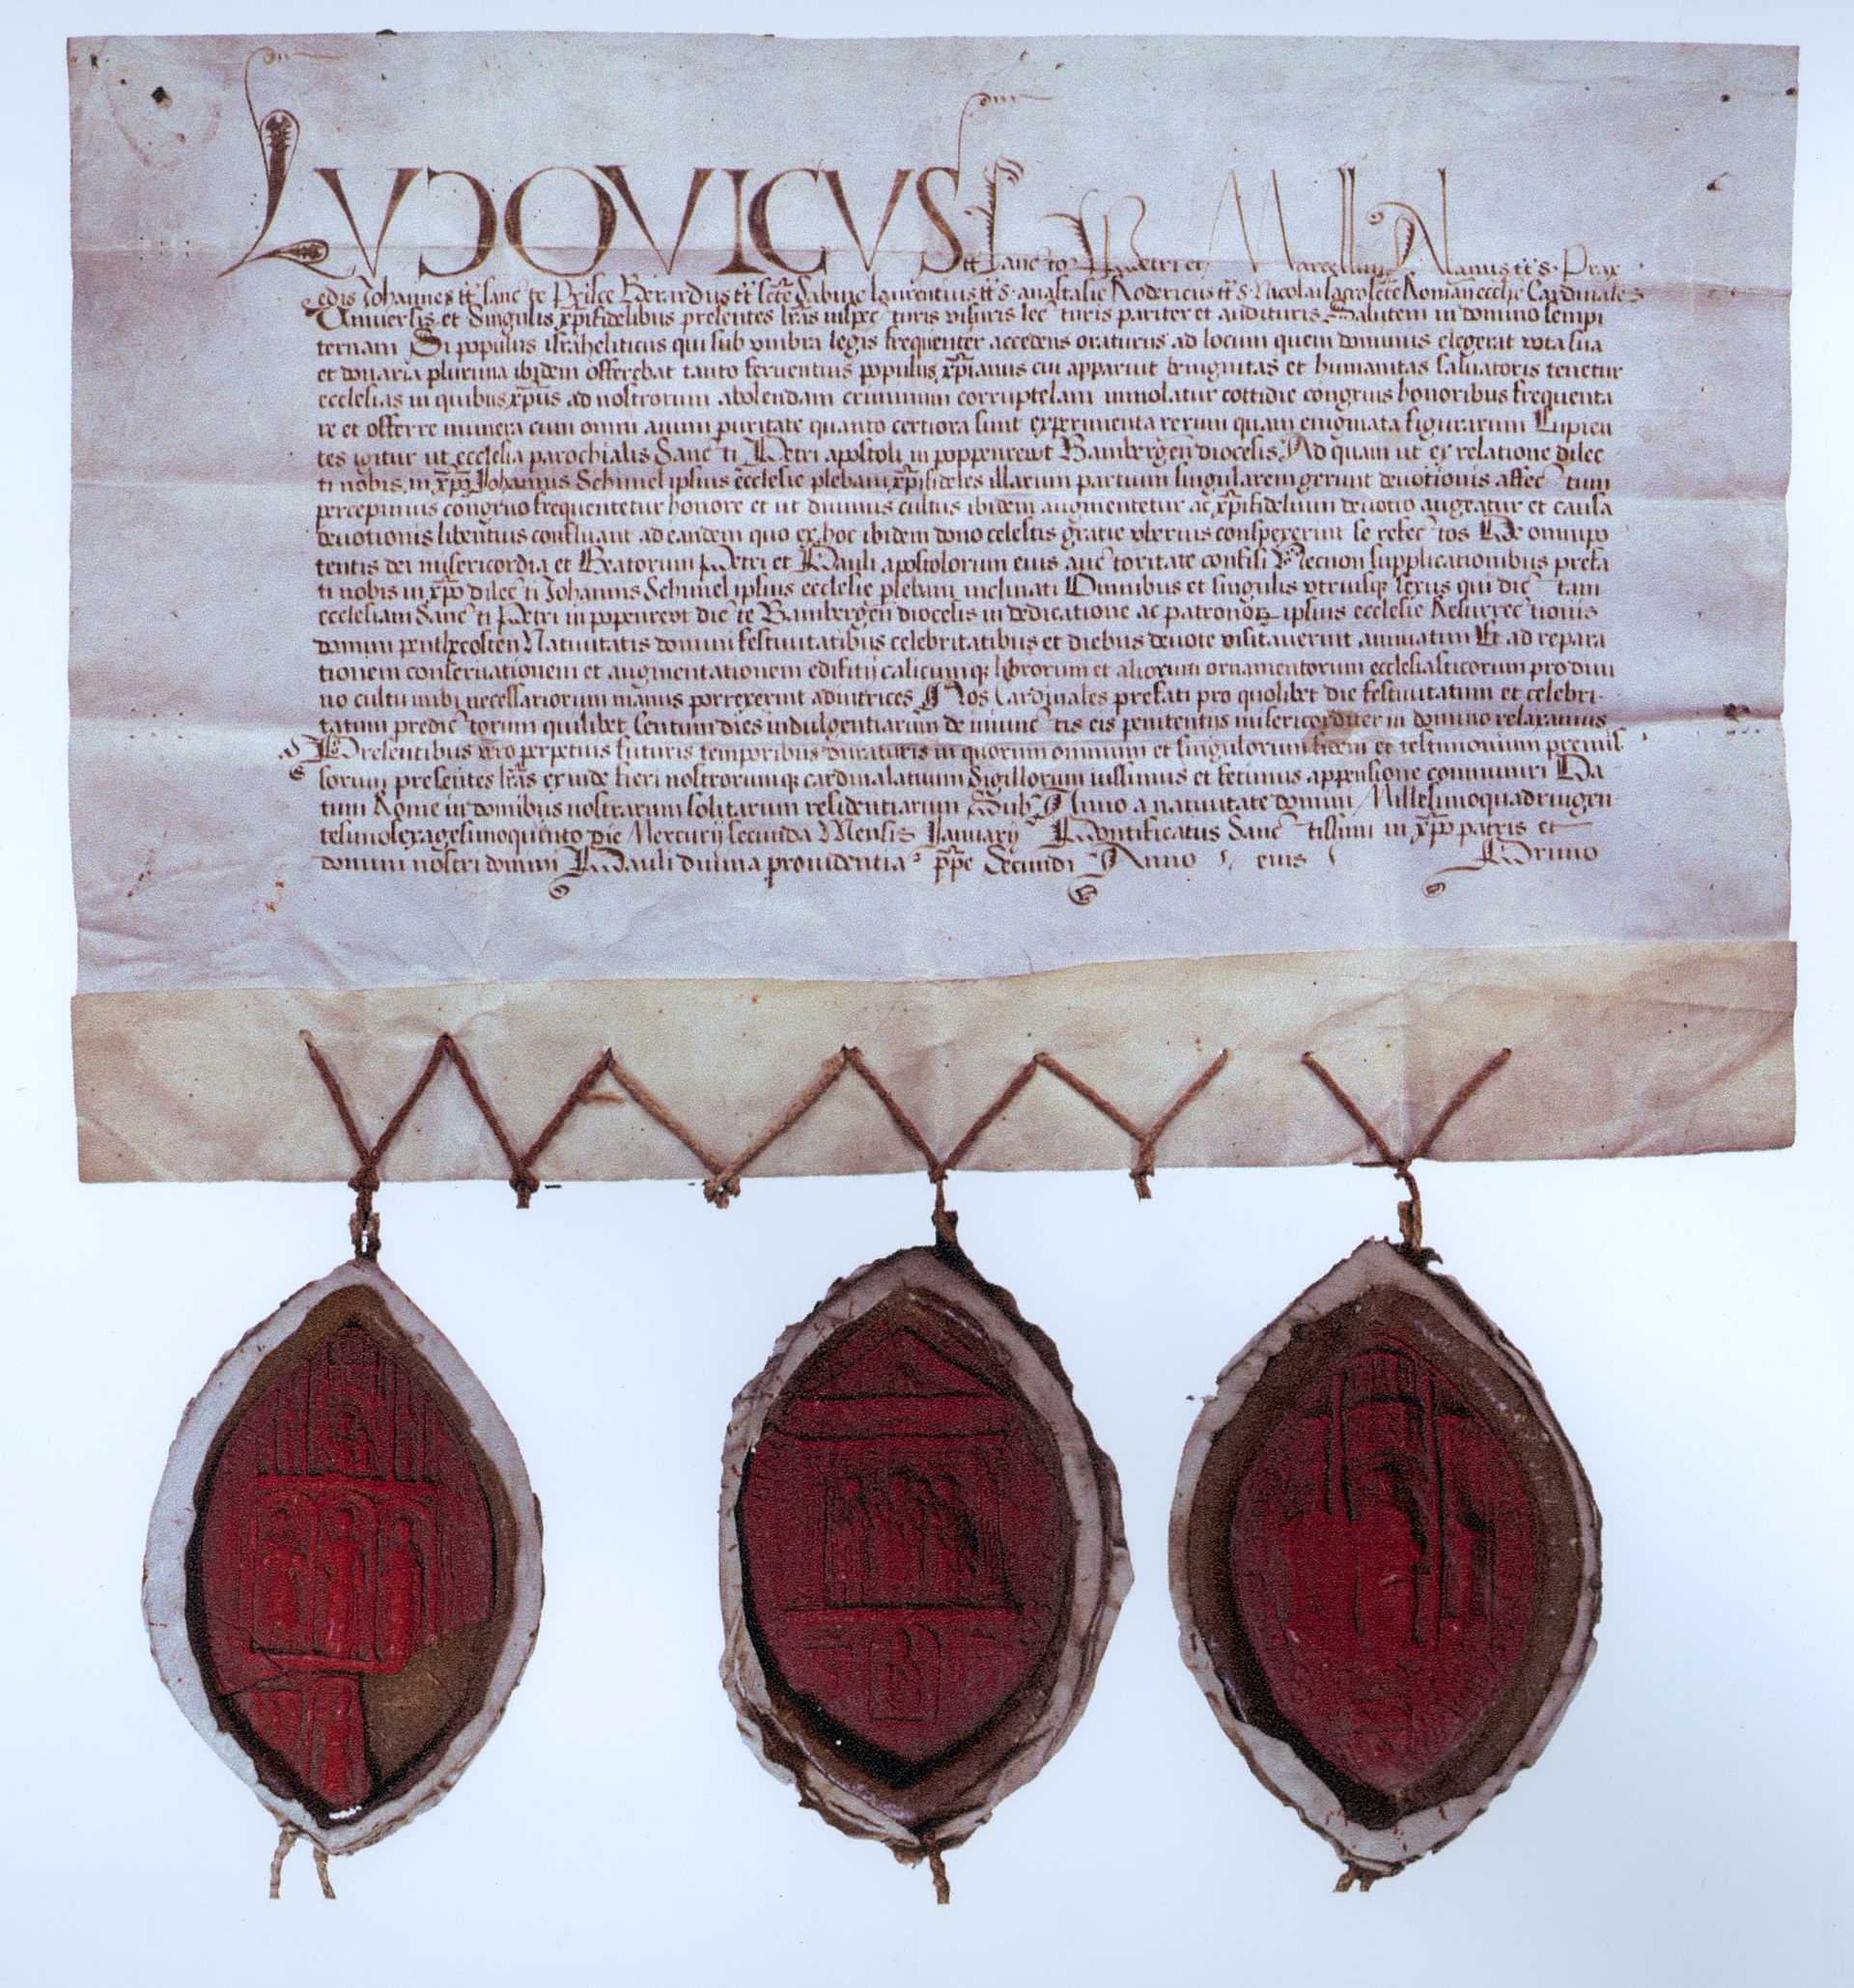 LUDOVICUS tt̄ Sancto℞ Petri et Marcellini Alanus tt̄ s. Prax
edis Johannes tt̄ sancte Prisce Berardus tt̄ sct̄e Sabine Laurentius tt̄ s. anastasie Rodericus tt̄ s. Nicolai sacroscte Roman ecclie Cardinales
Universis et Singulis xp̄ifidelibus presentes lr̄as inspecturis visuris lecturis pariter et audituris Salutem in domino sempi
ternam Si populus israheliticus qui sub umbra legis frequenter accedens oraturus ad locum quem dominus elegerat vota sua
et donaria plurima ibidem offerebat tanto ferventius populus xp̄ianus cui apparuit benignitas et humanitas salvatoris tenetur
ecclesias in quibus xp̄us ad nostrorum abolendam criminum corruptelam immolatur cottidie congruis honoribus frequenta
re et offerre munera cum omni animi puritate quanto certiora sunt experimenta rerum quam enigmata figurarum Cupien
tes igitur ut ecclesia parochialis Sancti Petri apostoli in poppenrewt Bambergen̄ diocesis Ad quam ut ex relatione dilec
ti nobis in xp̄o Johannis Schmel ipsius ecclesie plebani xp̄ifideles illarum partium singularem gerunt devotionis affectum
percepimus congruo frequentetur honore et ut divinus cultus ibidem augmentetur ac xp̄ifidelium devotio augeatur et causa
devotionis libentius confluant ad eandem quo ex hoc ibidem dono celestis gratie uberius conspexerint se refectos De omnipo
tentis dei misericordia et Beatorum Petri et Pauli apostolorum eius auctoritate confisi Necnon supplicationibus prefa
ti nobis in xp̄o dilecti Johannis Schmel ipsius ecclesie plebani inclinati Omnibus et singulis utriusq̧ sexus qui dictam
ecclesiam Sancti Petri in popenreut dicte Bambergen̄ diocesis in dedicatione ac patrono℞ ipsius ecclesie Resurrectionis
domini penthecosten Nativitatis domini festivitatibus celebritatibus et diebus devote visitaverint annuatim Et ad repara
tionem conservationem et augmentationem edifitij calicumq̧ librorum et aliorum ornamentorum ecclesiasticorum pro divi
no cultu inibi necessariorum manus porrexerint adiutrices Nos Cardinales prefati pro quolibet die festivitatum et celebri
tatum predictorum quilibet Centum dies indulgentiarum de iniunctis eis penitentiis misericorditer in domino relaxamus
Presentibus vero perpetuis futuris temporibus duraturis in quorum omnium et singulorum fidem et testimonium premis
sorum presentes lr̄as exinde fieri nostrorumq̧ cardinalatuum Sigillorum iussimus et fecimus appensione communiri Da
tum Rome in domibus nostrarum solitarum residentiarum Sub Anno a nativitate domini Millesimoquadringen
tesimosexagesimoquinto die Mercurij secunda Mensis Januarij Pontificatus Sanctissimi in xp̄o patris et
domini nostri domini Pauli divina providentia pp̄e Secundi Anno eius Primo